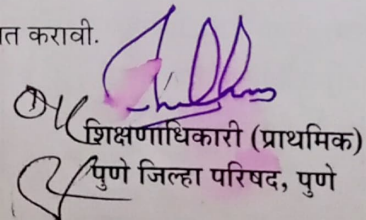 त करावी.
शिक्षणाधिकारी (प्राथमिक)
पुणे जिल्हा परिषद, पुणे